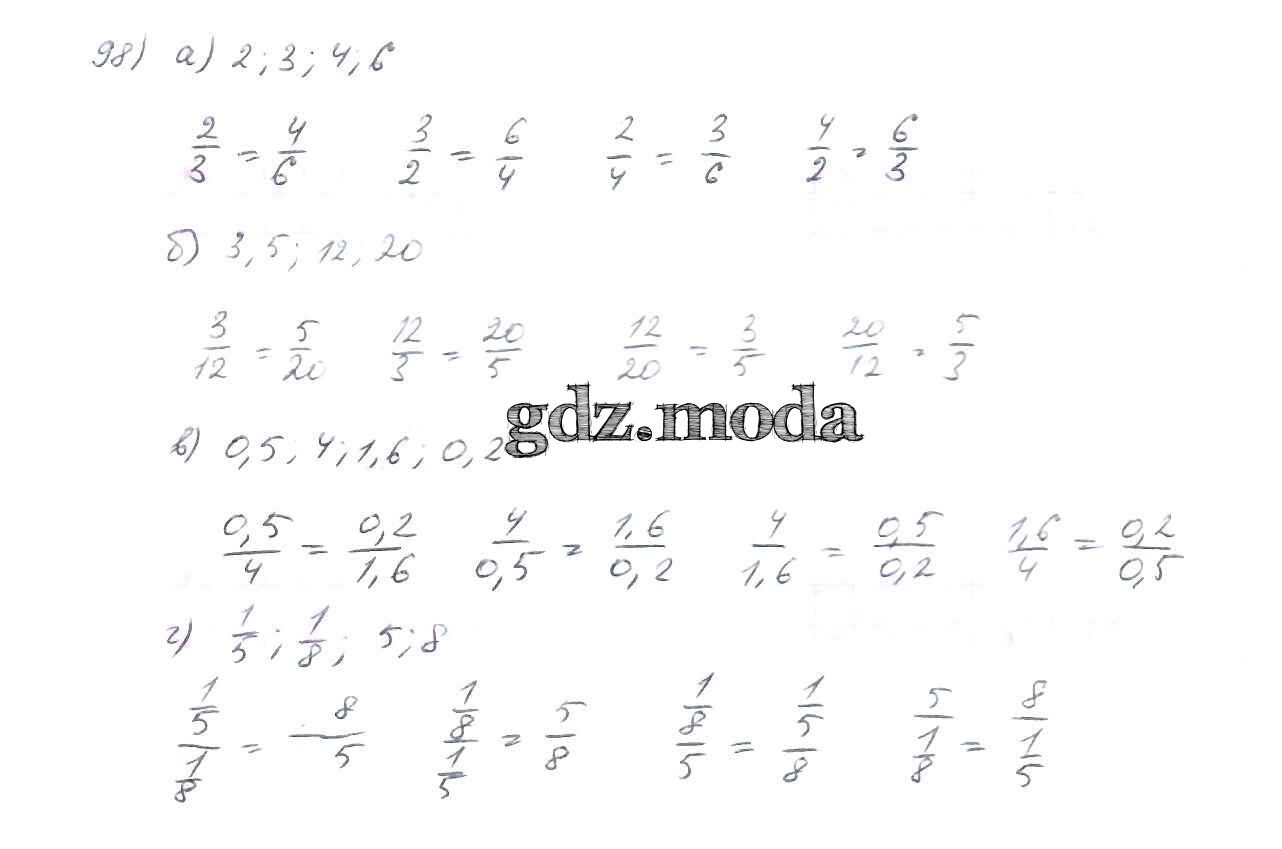 98) а) 2; 3; 4; 6
2/3 = 4/6 3/2 = 6/4 2/4 = 3/6 4/2 = 6/3
б) 3, 5; 12, 20
3/12 = 5/20 12/3 = 20/5 12/20 = 3/5 20/12 = 5/3
gdz.moda
в) 0,5; 4; 1,6; 0,2
0,5/4 = 0,2/1,6 4/0,5 = 1,6/0,2 4/1,6 = 0,5/0,2 1,6/4 = 0,2/0,5
г) 1/5; 1/8; 5; 8
(1/5)/(1/8) = 8/5 (1/8)/(1/5) = 5/8 (1/8)/5 = (1/5)/8 5/(1/8) = 8/(1/5)